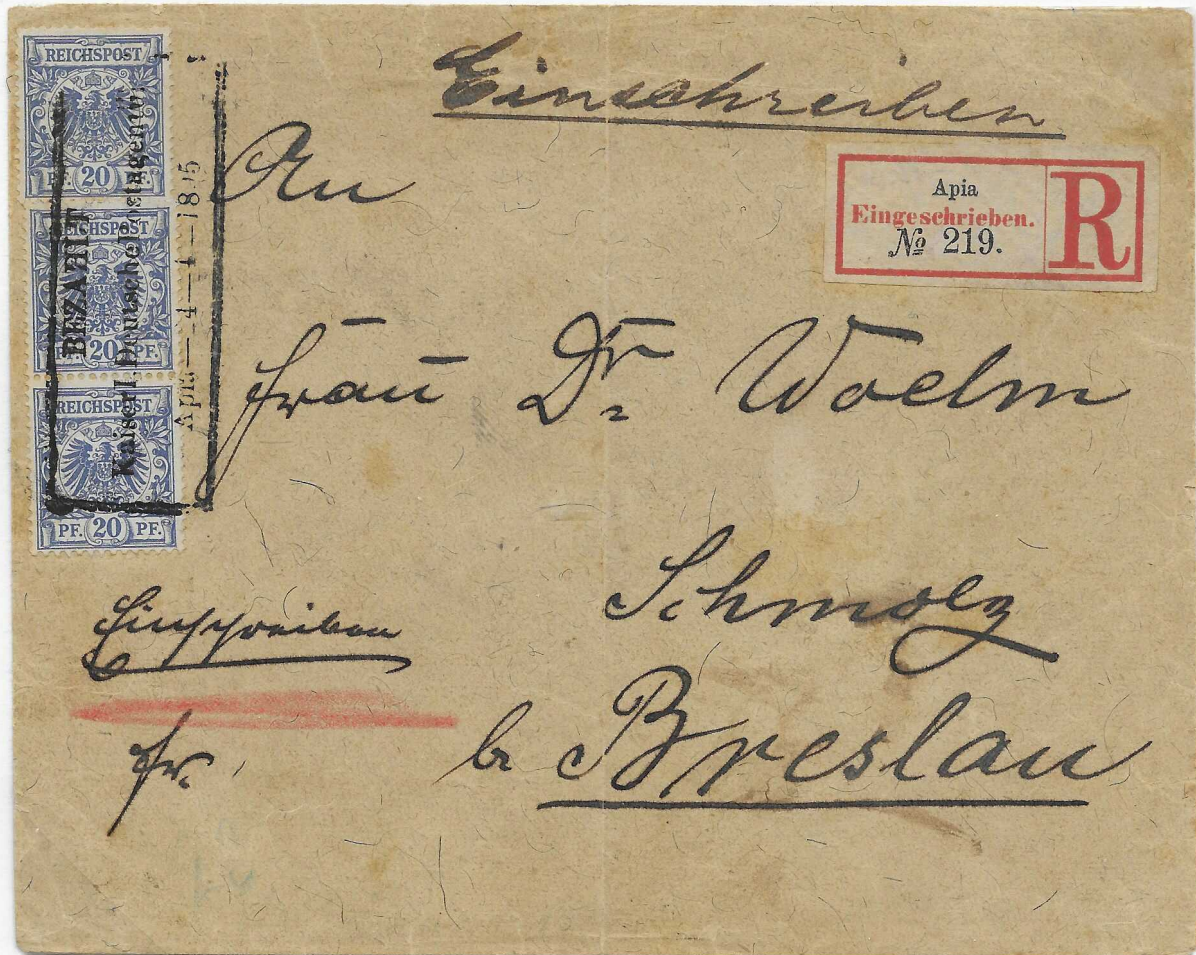 REICHSPOST
PF. 20 PF.
REICHSPOST
PF. 20 PF.
REICHSPOST
PF. 20 PF.
BEZAHLT
Kaiserl. Deutsche Postagentur
Einschreiben
Apia
Eingeschrieben.
№ 219.
R
An
Frau Dr. Woelm
Schmolz
b. Breslau
Einschreiben
fr.